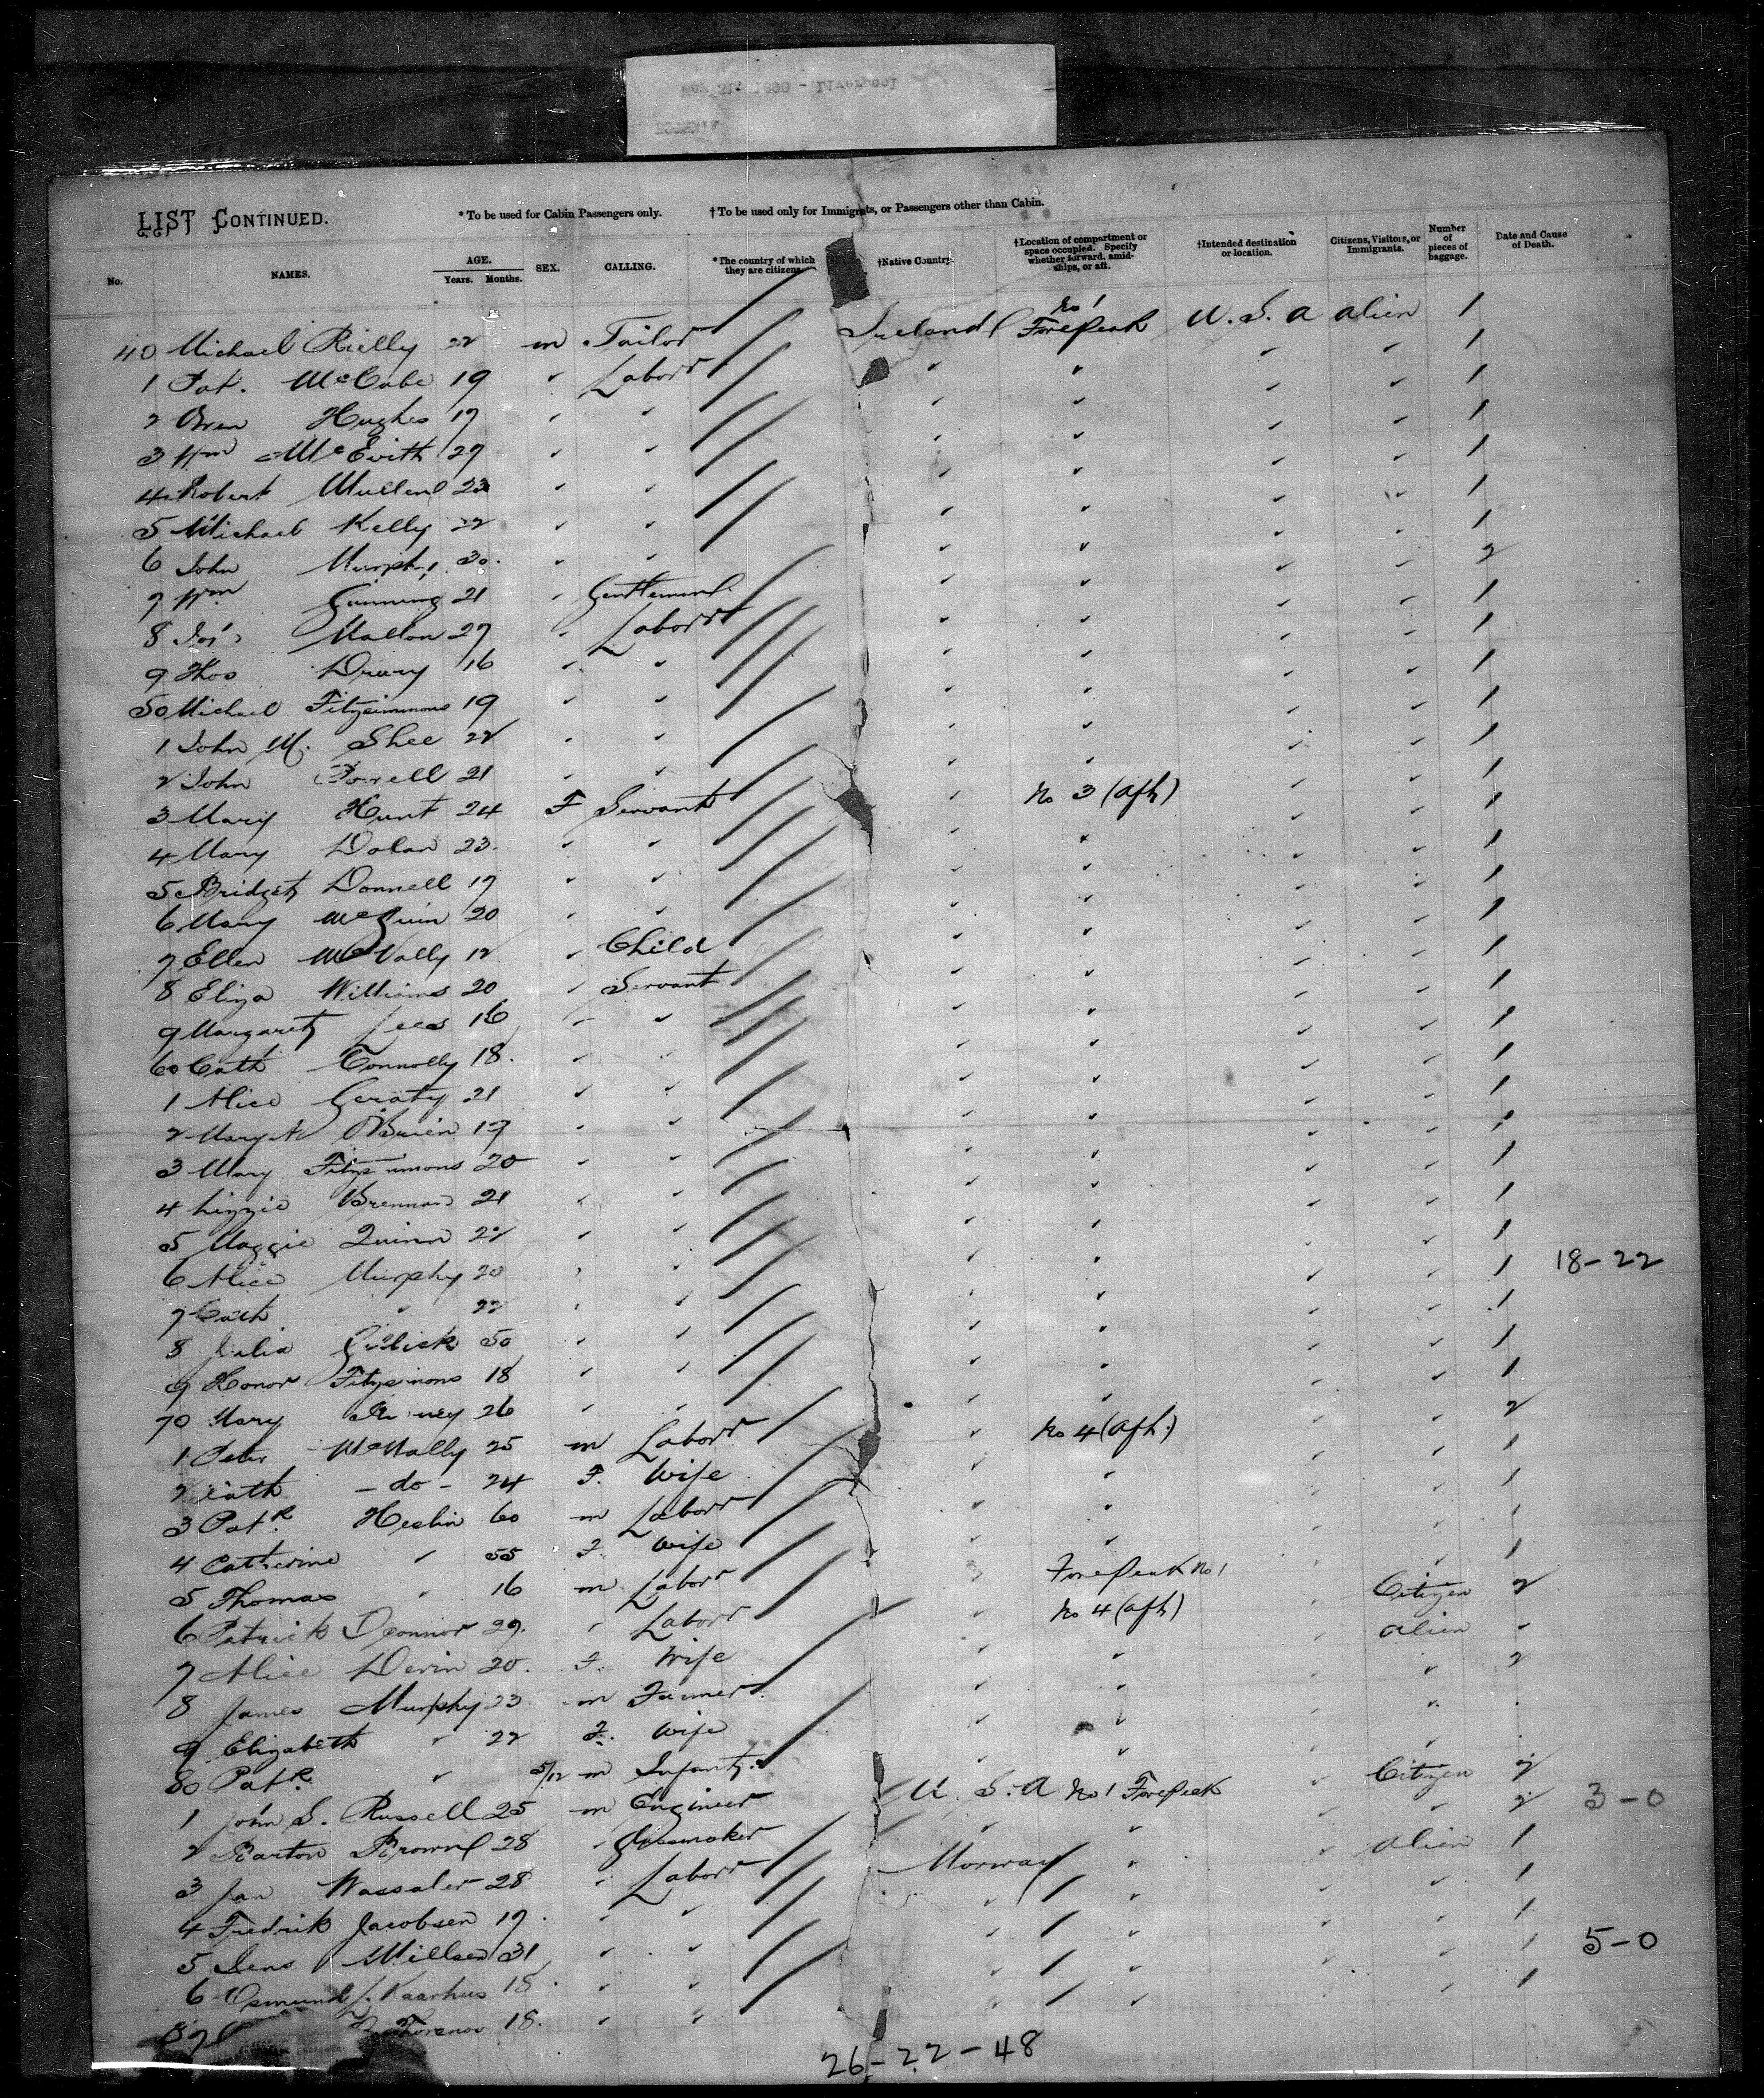 LIST CONTINUED.
*To be used for Cabin Passengers only. †To be used only for Immigrants, or Passengers other than Cabin.
No. NAMES. AGE. Years. Months. SEX. CALLING. *The country of which they are citizens. †Native Country. †Location of compartment or space occupied. Specify whether forward, amidships, or aft. †Intended destination or location. Citizens, Visitors, or Immigrants. Number of pieces of baggage. Date and Cause of Death.
40 Michael Rielly 22 m Tailor Ireland No 1 Forepeak U.S.A alien 1
1 Pat. McCabe 19 " Laborr " " " " 1
2 Owen Hughes 17 " " " " " " 1
3 Wm McEvith 27 " " " " " " 1
4 Robert Mullen 23 " " " " " " 1
5 Michael Kelly 22 " " " " " " 1
6 John Murphy 30 " " " " " " 1
7 Wm Gunning 21 " Gentleman " " " " 2
8 Jos Mallon 27 " Laborr " " " " 1
9 Thos Drury 16 " " " " " " 1
50 Michael Fitzsimmons 19 " " " " " " 1
1 John M. Shee 22 " " " " " " 1
2 John 21 " " " " " " 1
3 Mary Hunt 24 F Servant " No 3 (aft) " " 1
4 Mary Dolan 23 " " " " " " 1
5 Bridget Donnell 17 " " " " " " 1
6 Mary 20 " " " " " " 1
7 Ellen McNally 12 " Child " " " " 1
8 Eliza Williams 20 " Servant " " " " 1
9 Margaret Lees 16 " " " " " " 1
60 Cath Connolly 18 " " " " " " 1
1 Alice Geraty 21 " " " " " " 1
2 Margt O'Brien 17 " " " " " " 1
3 Mary Fitzsimons 20 " " " " " " 1
4 Lizzie Brennan 21 " " " " " " 1
5 Maggie Quinn 22 " " " " " " 1
6 Alice Murphy 20 " " " " " " 1 18-22
7 Cath " 22 " " " " " " 1
8 Julia Gillick 50 " " " " " " 1
9 Honor Fitzsimons 18 " " " " " " 1
70 Mary 26 " " " " " " 1
1 Peter McNally 25 m Laborr " No 4 (aft) " " 2
2 Cath -do- 24 F. Wife " " " " 1
3 Patk Heslin 60 m Laborr " " " " 1
4 Catherine " 55 F. Wife " " " " 1
5 Thomas " 16 m Laborr " Forepeak No 1 " " 1
6 Patrick O'Connor 29 " Laborr " No 4 (aft) " Citizen 2
7 Alice Devin 20 F. Wife " " " alien "
8 James Murphy 23 m Farmer " " " " 2
9 Elizabeth " 22 F. Wife " " " "
80 Patk " 5/12 m Infant " " " "
1 John S. Russell 25 m Engineer U.S.A No 1 Forepeak " Citizen 2
2 Barton Brown 28 " Glassmaker " " " " 2 3-0
3 Jan Wassaler 28 " Laborr Norway " " alien 1
4 Fredrik Jacobsen 17 " " " " " " 1
5 Jens Nillsen 31 " " " " " " 1
6 Osmund J. Kaarhus 18 " " " " " " 1 5-0
87 18 " " " " " " 1
26-22-48